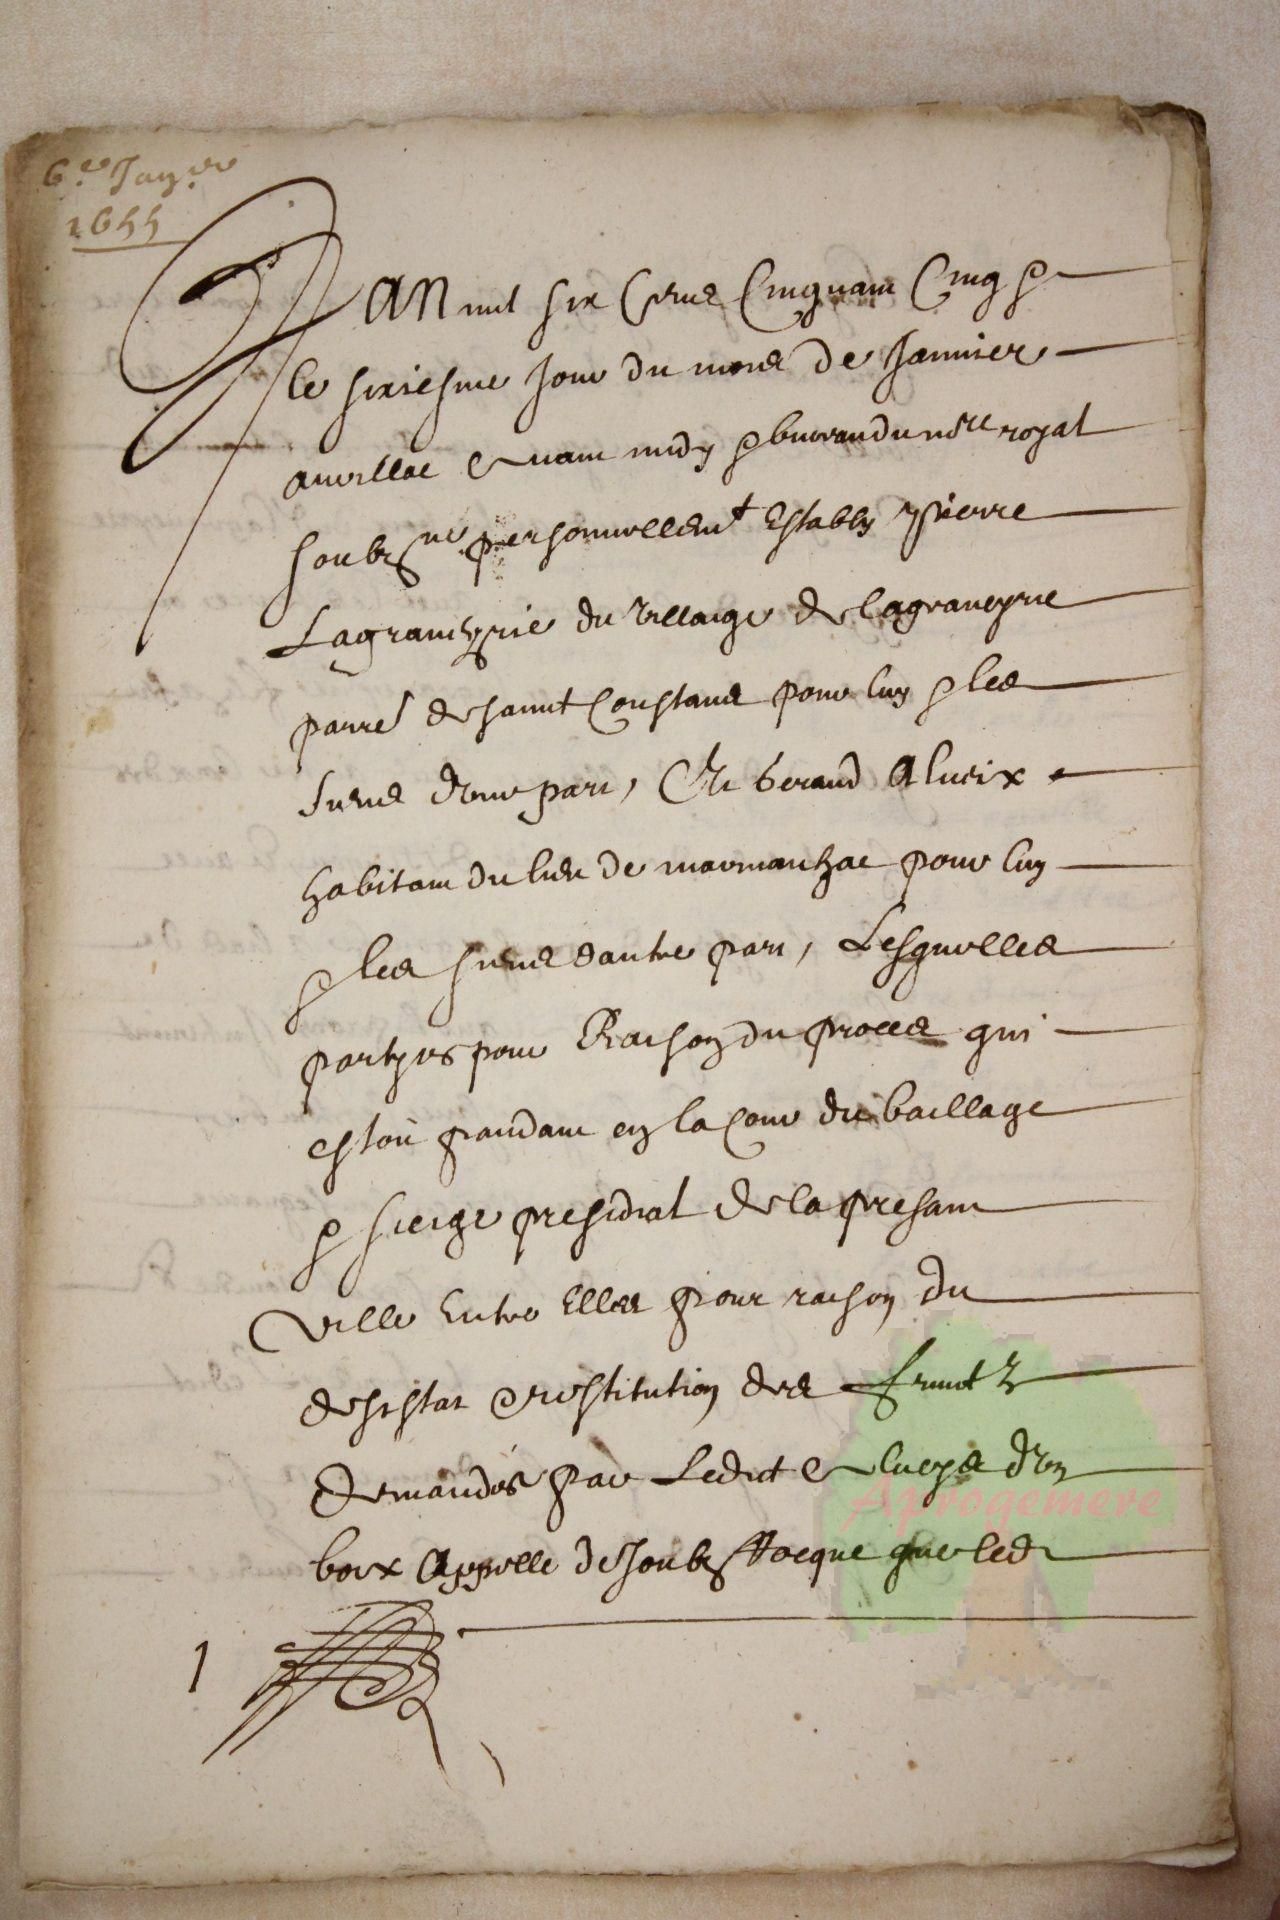 6.e Janv.er
1655
L'an mil six cens cinquante cinq &
le sixiesme jour du mois de Janvier
a aurillac avant midy pardevant du no.re royal
soubz.ne personnellem.t estably pierre
Lagraneyrie du villaige de Lagraneyrie
parr.e de sainct Constans pour luy & les
siens d'une part, Et beraud Alueix
habitant du lieu de marmanhac pour luy
& les siens d'autre part, Lesquelles
partyes pour Raison du proces qui
estoit pandant en la Cour du baillage
& siege presidial de la presant
ville Entre Elles pour raison du
desistat & restitution des fruictz
demandés par Ledict alueys d'un
boix Appelle de soubz que led
1
Aprogemere